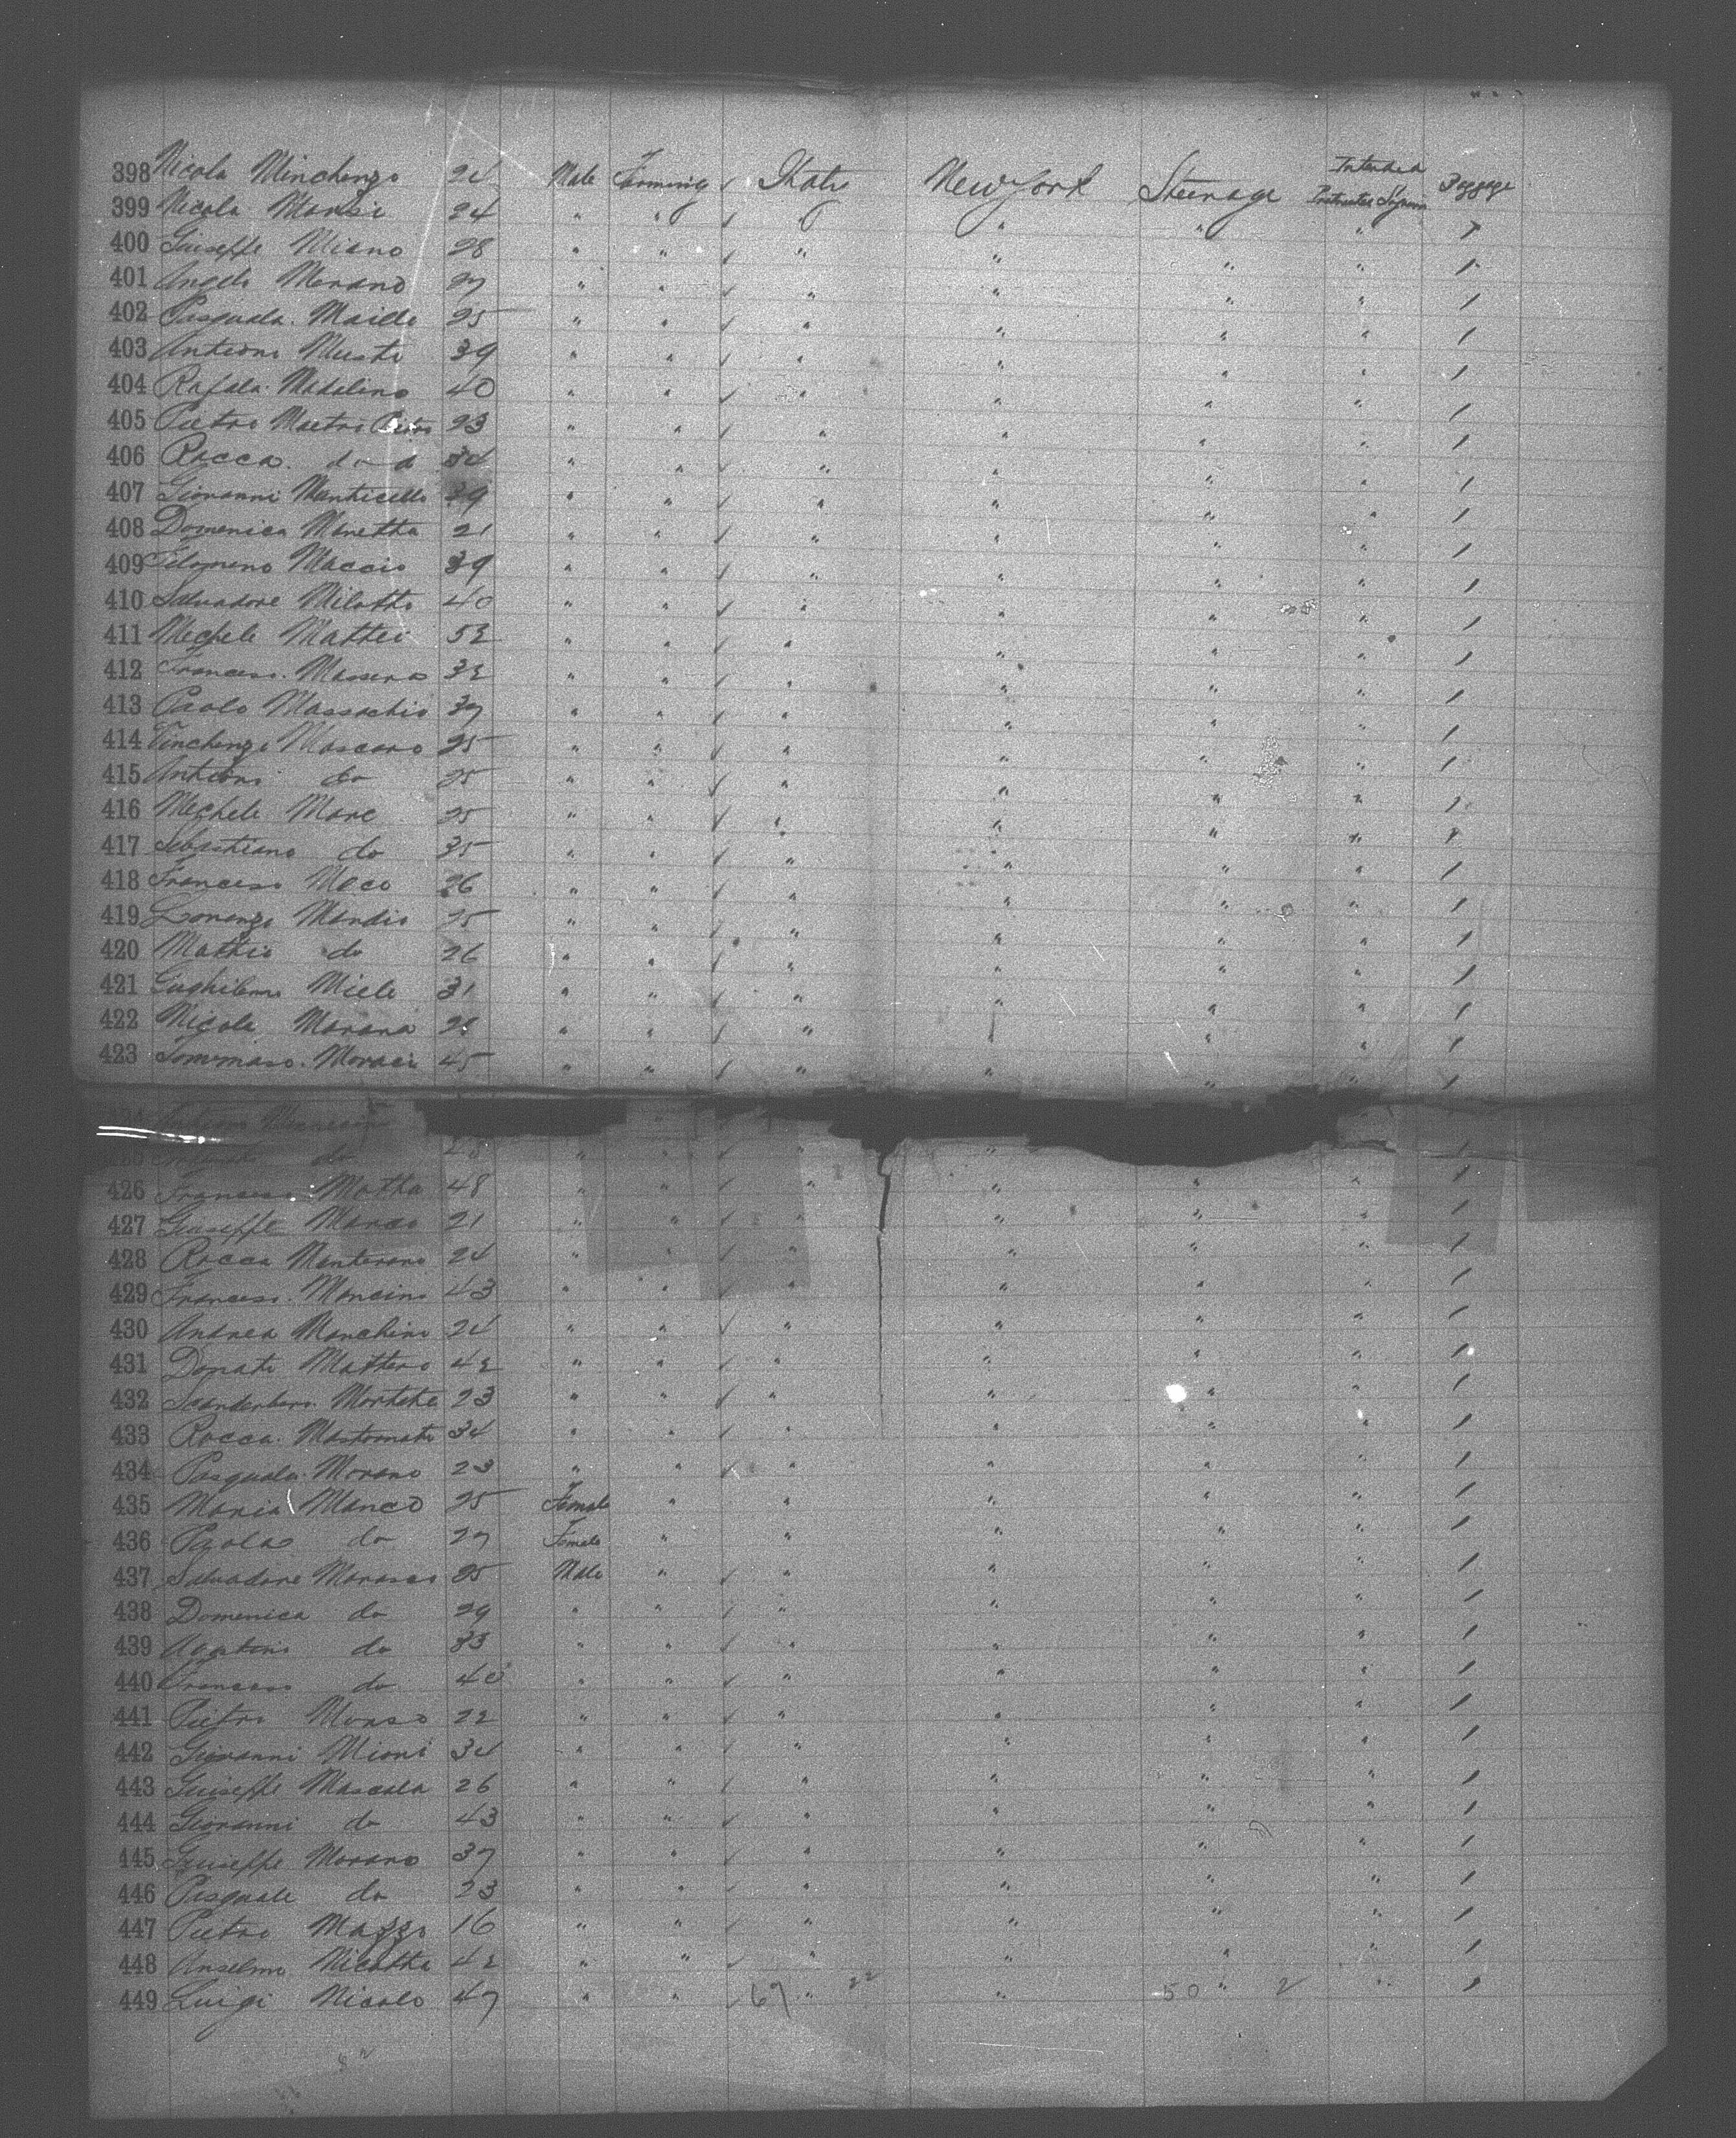 398 Nicola Minchengo 24 Male Farming ✓ Italy New York Steerage Intended Protracted Sojourn Baggage
399 Nicola Mansi 24 " " ✓ " " " " 1
400 Giuseppe Miano 28 " " ✓ " " " " 1
401 Angelo Merano 27 " " ✓ " " " " 1
402 Pasquala Maide 25 " " ✓ " " " " 1
403 Antioni Musti 39 " " ✓ " " " " 1
404 Rafala Madalino 40 " " ✓ " " " " 1
405 Pietro Maetro Pietro 23 " " ✓ " " " " 1
406 Rocca do d 34 " " ✓ " " " " 1
407 Giovanni Monticello 39 " " ✓ " " " " 1
408 Domenica Monetta 21 " " ✓ " " " " 1
409 Filomeno Maccio 39 " " ✓ " " " " 1
410 Salvadore Milotto 40 " " ✓ " " " " 1
411 Mechele Mattei 52 " " ✓ " " " " 1
412 Francesco Massera 32 " " ✓ " " " " 1
413 Paolo Massachio 37 " " ✓ " " " " 1
414 Vinchenzo Mascaro 25 " " ✓ " " " " 1
415 Antioni do 25 " " ✓ " " " " 1
416 Mechele Mare 25 " " ✓ " " " " 1
417 Sebastiano do 35 " " ✓ " " " " 1
418 Francesco Meco 26 " " ✓ " " " " 1
419 Lorenzo Mandio 25 " " ✓ " " " " 1
420 Mattio do 26 " " ✓ " " " " 1
421 Gughilemo Miele 31 " " ✓ " " " " 1
422 Nicola Marana " " ✓ " " " " 1
423 Tommaso Moraci 45 " " ✓ " " " " 1
do " " ✓ " " 1
426 Francesco Motta 48 " " ✓ " " " " 1
427 Giuseppe Manco 21 " " ✓ " " " " 1
428 Rocca Monterano 24 " " ✓ " " " " 1
429 Francesco Moncino 43 " " ✓ " " " " 1
430 Andrea Monchini 24 " " ✓ " " " " 1
431 Donato Mattero 42 " " ✓ " " " " 1
432 Scanderbero Mortete 23 " " ✓ " " " " 1
433 Rocca Mastornato 34 " " ✓ " " " " 1
434 Pasquala Morano 23 " " ✓ " " " " 1
435 Maria Manco 25 Female " " " " " 1
436 Paola do 27 Female " " " " " 1
437 Salvadore Marasco 25 Male " ✓ " " " " 1
438 Domenica do 29 " " ✓ " " " " 1
439 do 33 " " ✓ " " " " 1
440 Francesco do 40 " " ✓ " " " " 1
441 Pietro Monso 22 " " ✓ " " " " 1
442 Giovanni Mioni 34 " " ✓ " " " " 1
443 Guiseppe Mascala 26 " " ✓ " " " " 1
444 Giovanni do 43 " " ✓ " " " " 1
445 Guiseppe Morano 37 " " ✓ " " " " 1
446 Pasquale do 23 " " ✓ " " " " 1
447 Pietro Mazzo 16 " " ✓ " " " " 1
448 Anselmo Nicotta 42 " " ✓ " " " " 1
449 Luigi Nicolo 47 " " ✓ 67 " 22 " 50 " 2 " 1